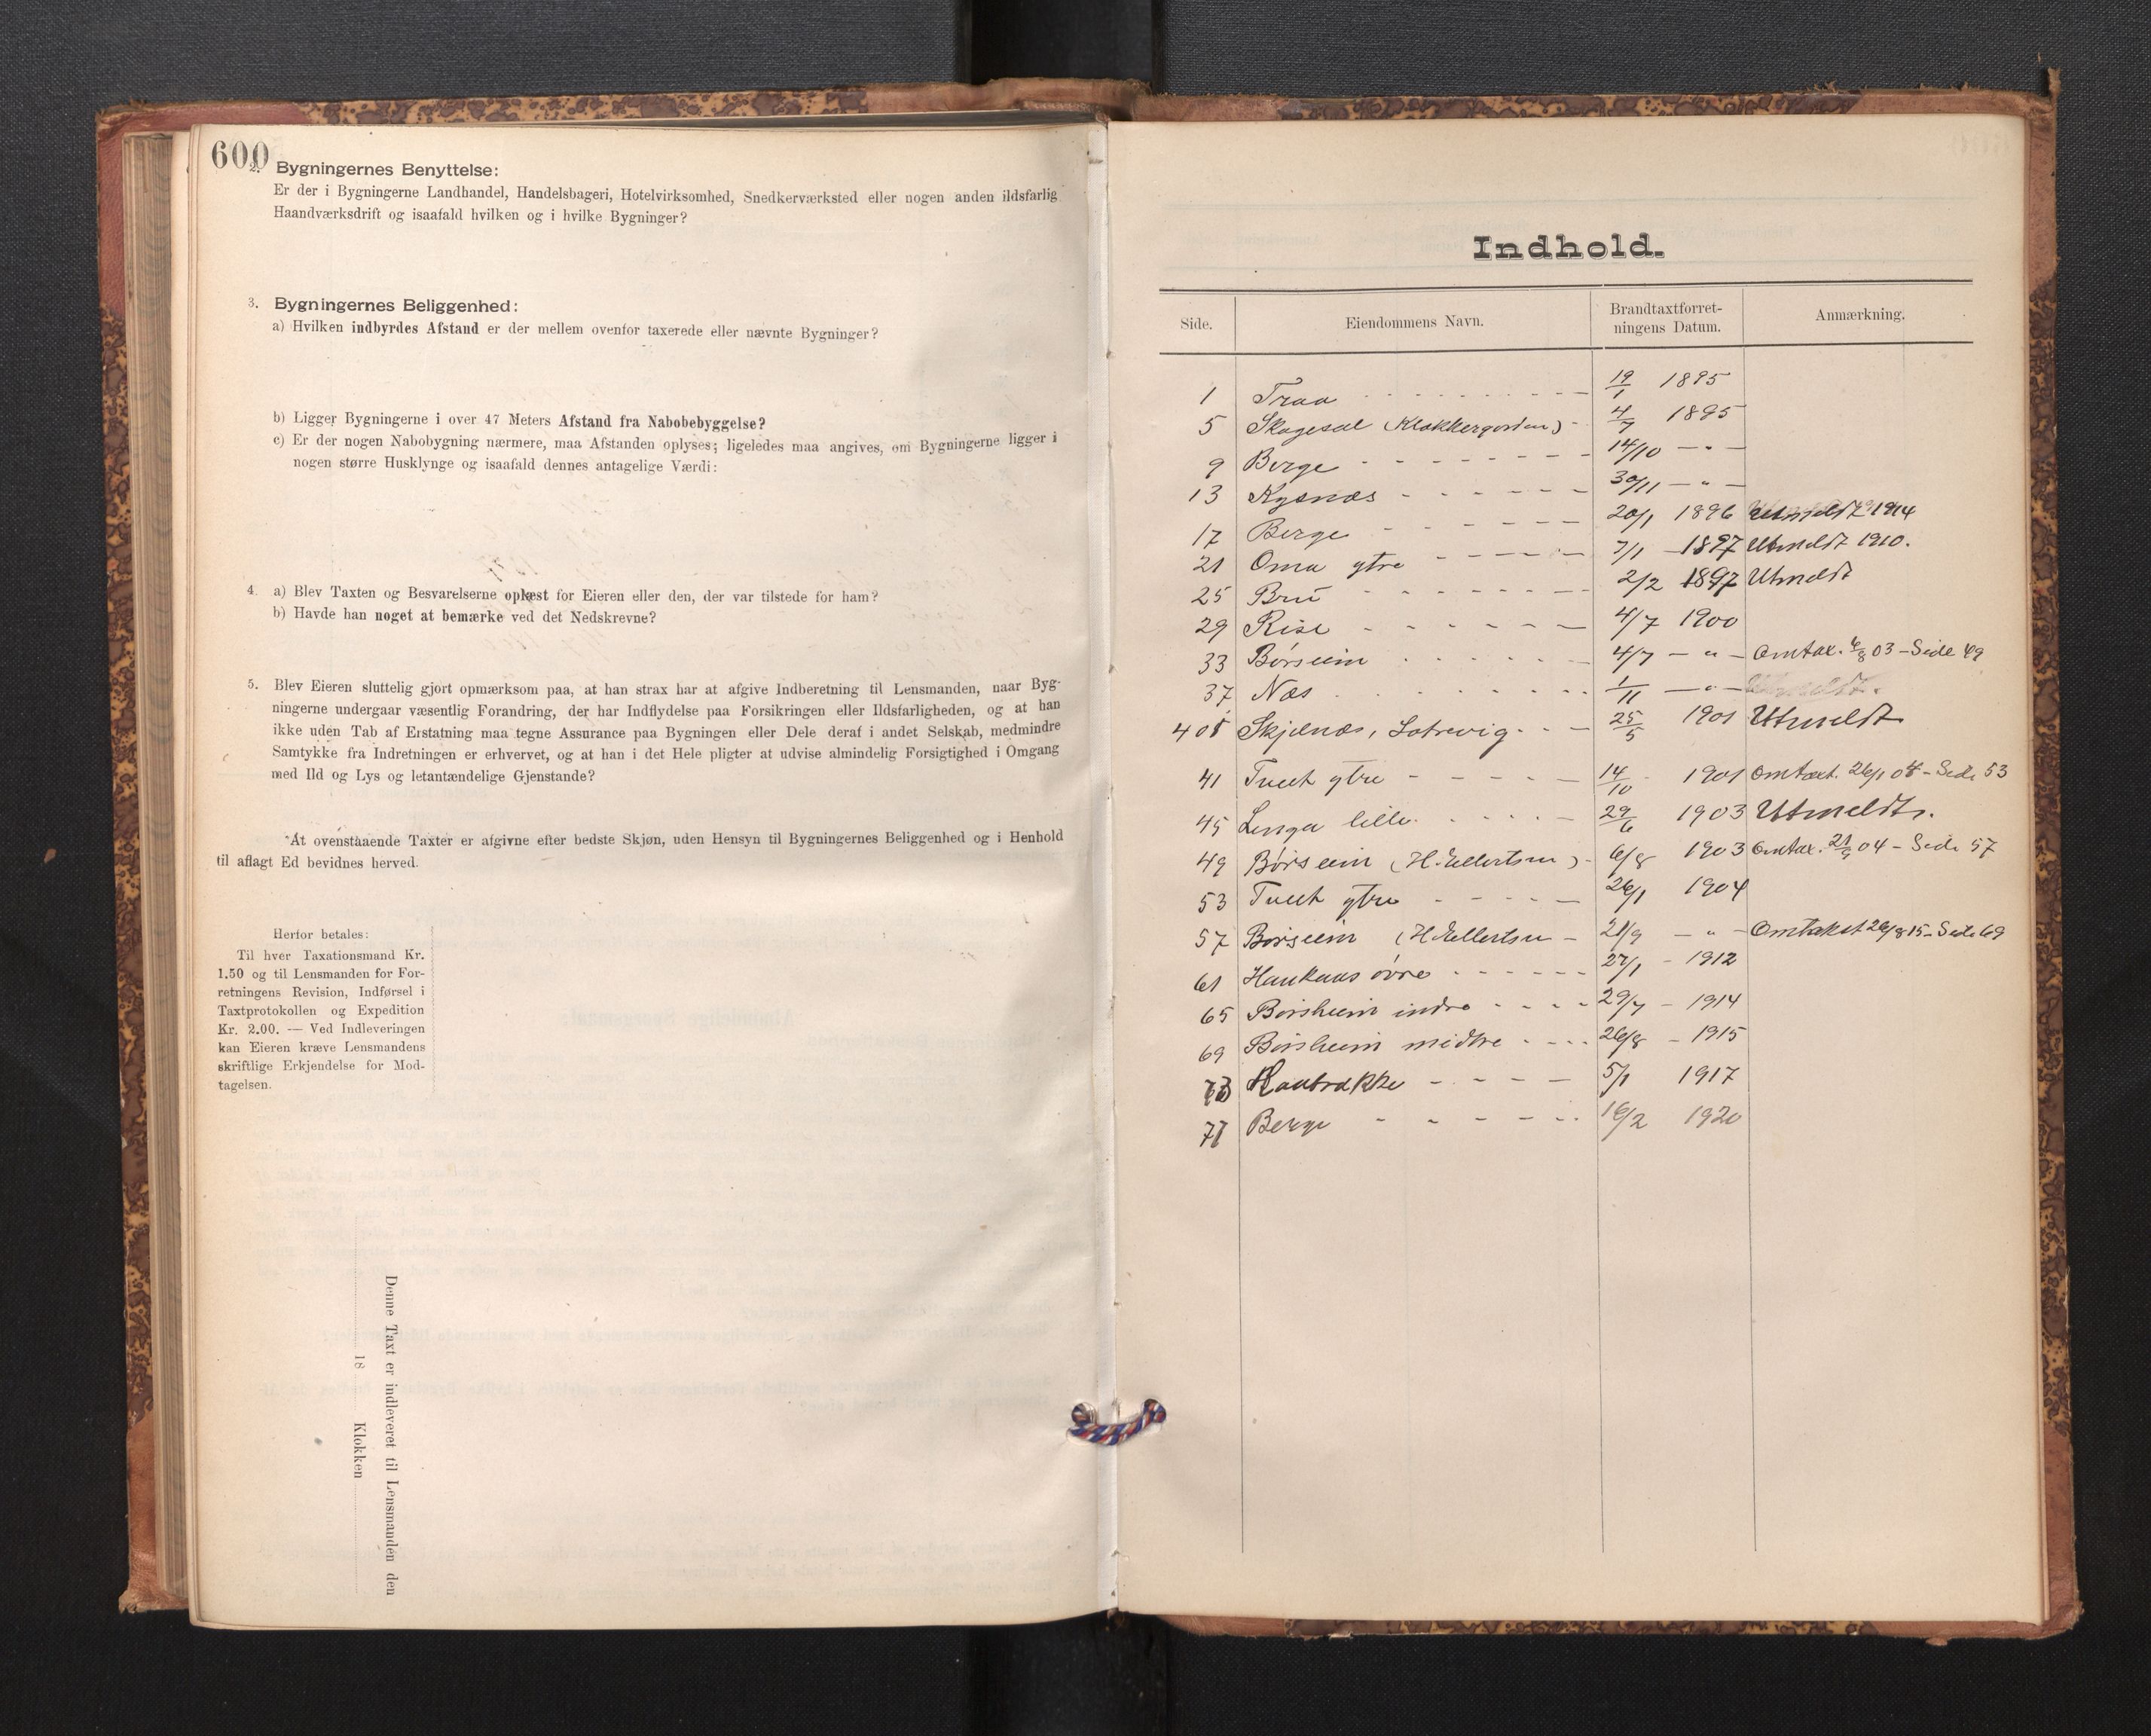 600
2. Bygningernes Benyttelse:
Er der i Bygningerne Landhandel, Handelsbageri, Hotelvirksomhed, Snedkerværksted eller nogen anden ildsfarlig
Haandværksdrift og isaafald hvilken og i hvilke Bygninger?
3. Bygningernes Beliggenhed:
a) Hvilken indbyrdes Afstand er der mellem ovenfor taxerede eller nævnte Bygninger?
b) Ligger Bygningerne i over 47 Meters Afstand fra Nabobebyggelse?
c) Er der nogen Nabobygning nærmere, maa Afstanden oplyses; ligeledes maa angives, om Bygningerne ligger i
nogen større Husklynge og isaafald dennes antagelige Værdi:
4. a) Blev Taxten og Besvarelserne oplæst for Eieren eller den, der var tilstede for ham?
b) Havde han noget at bemærke ved det Nedskrevne?
5. Blev Eieren sluttelig gjort opmærksom paa, at han strax har at afgive Indberetning til Lensmanden, naar Byg-
ningerne undergaar væsentlig Forandring, der har Indflydelse paa Forsikringen eller Ildsfarligheden, og at han
ikke uden Tab af Erstatning maa tegne Assurance paa Bygningen eller Dele deraf i andet Selskab, medmindre
Samtykke fra Indretningen er erhvervet, og at han i det Hele pligter at udvise almindelig Forsigtighed i Omgang
med Ild og Lys og letantændelige Gjenstande?
At ovenstaaende Taxter er afgivne efter bedste Skjøn, uden Hensyn til Bygningernes Beliggenhed og i Henhold
til aflagt Ed bevidnes herved.
Herfor betales:
Til hver Taxationsmand Kr.
1.50 og til Lensmanden for For-
retningens Revision, Indførsel i
Taxtprotokollen og Expedition
Kr. 2.00. — Ved Indleveringen
kan Eieren kræve Lensmandens
skriftlige Erkjendelse for Mod-
tagelsen.
Denne Taxt er indleveret til Lensmanden den
18 Klokken
Indhold.
Side. Eiendommens Navn. Brandtaxtforret-
ningens Datum. Anmærkning.
1 Traa 19/1 1895
5 Skagesal (Klokkergarden) 4/7 1895
9 Berge 14/10 — " —
13 Kysnæs 30/11 — " —
17 Berge 20/1 1896 Utmeldt 1914
21 Oma ytre 7/1 1897 Utmeldt 1910.
25 Bru 2/2 1897 Utmeldt
29 Rise 4/7 1900
33 Børseim 4/7 — " — Omtax. 6/8 03 - Side 49
37 Næs 1/11 — " —
Skjelnæs, 25/5 1901 Utmeldt
41 Tveit ytre 14/10 1901 Omtaxt. 26/1 04 - Side 53
45 Linga lille 29/6 1903 Utmeldt.
49 Børseim (H. Ellertsen) 6/8 1903 Omtax. 21/9 04 - Side 57
53 Tveit ytre 26/1 1904
57 Børseim (H. Ellertsen 21/9 — " — Omtakst 26/8 15 - Side 69
61 Haukaas øvre 27/1 - 1912
65 Børsheim indre 29/7 - 1914
69 Børsheim midtre 26/8 - 1915
73 5/1 1917
77 Berge 16/2 1920